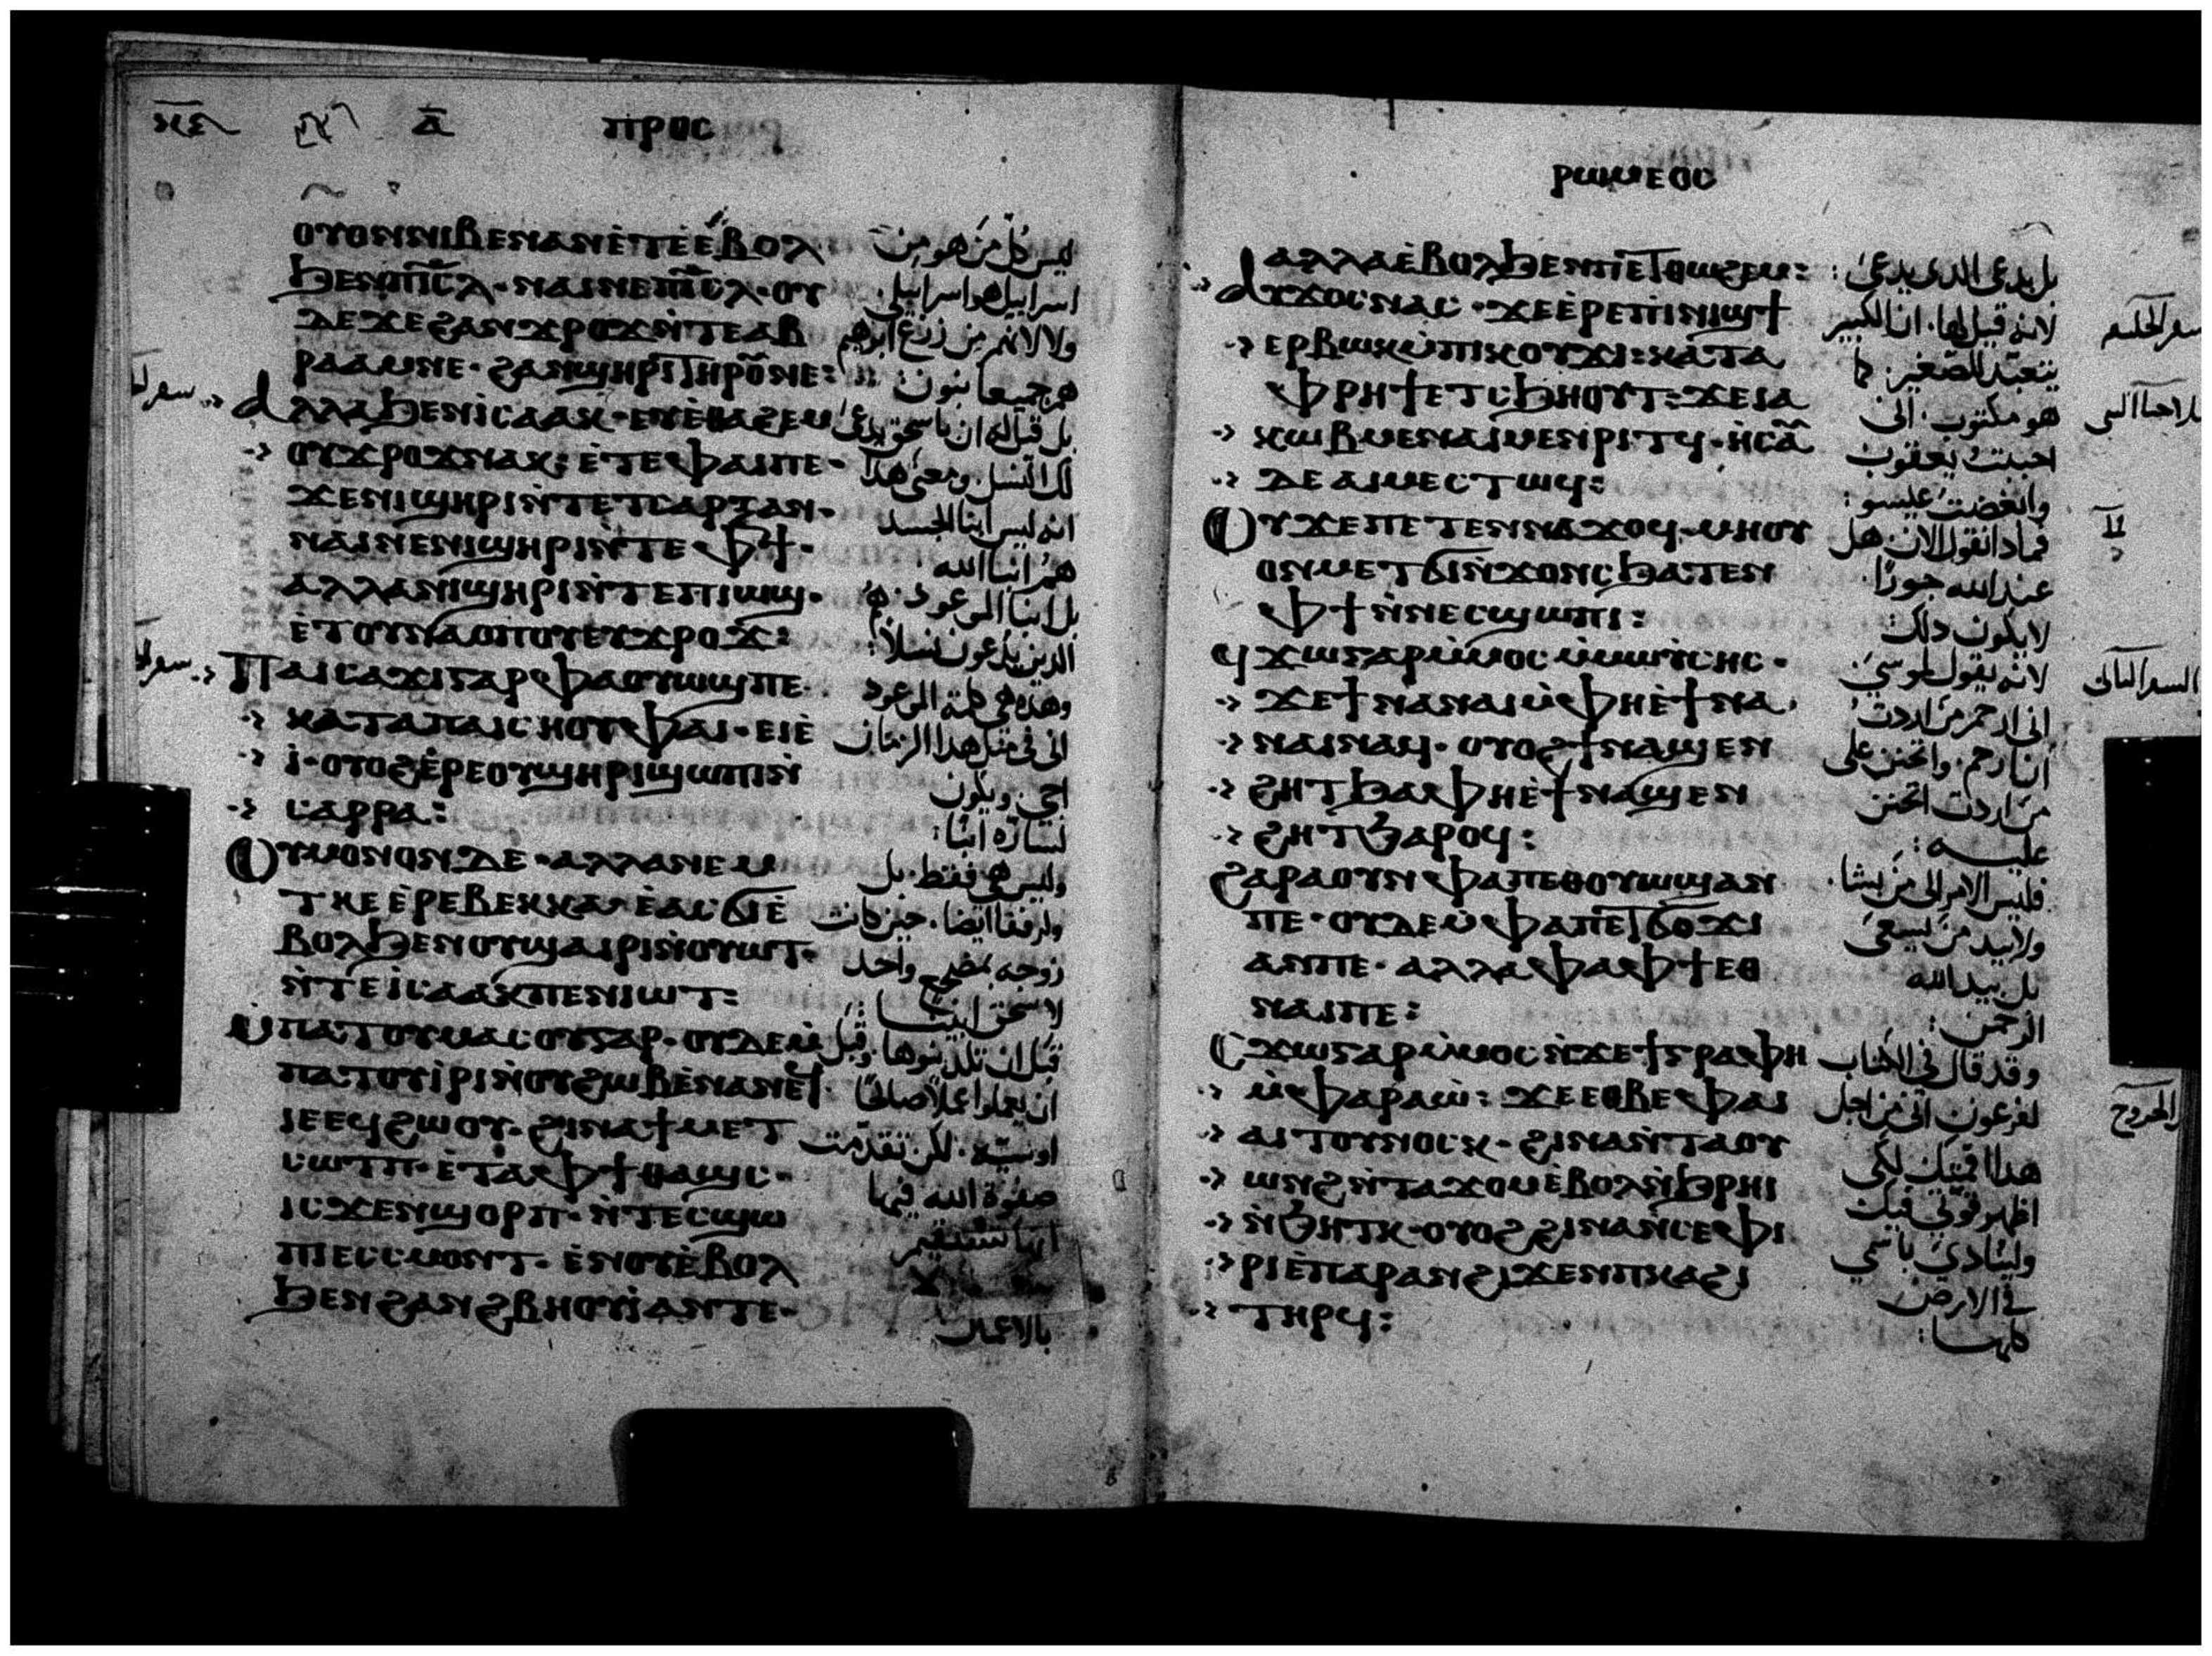 ⲁ̅ ⲡⲣⲟⲥ
ⲟⲩⲟⲛⲛⲓⲃⲉⲛⲁⲛⲉ̀ⲧⲉ̀ⲉ̀ⲃⲟⲗ
ϧⲉⲛⲡⲓⲥ̅ⲗ· ⲛⲁⲓⲛⲉⲡⲓⲥ̅ⲗ· ⲟⲩ
ⲇⲉϫⲉϩⲁⲛϫⲣⲟϫⲛ̀ⲧⲉⲁⲃ
ⲣⲁⲁⲙⲛⲉ· ϩⲁⲛϣⲏⲣⲓⲧⲏⲣⲟⲩⲛⲉ:
ⲁⲗⲗⲁϧⲉⲛⲓⲥⲁⲁⲕ· ⲉⲩⲉ̀ⲑⲁϩⲉⲙ
ⲟⲩϫⲣⲟϫⲛⲁⲕ: ⲉ̀ⲧⲉⲫⲁⲓⲡⲉ·
ϫⲉⲛⲓϣⲏⲣⲓⲛ̀ⲧⲉⲧⲥⲁⲣⲝⲁⲛ·
ⲛⲁⲓⲛⲉⲛⲓϣⲏⲣⲓⲛ̀ⲧⲉⲫϯ·
ⲁⲗⲗⲁⲛⲓϣⲏⲣⲓⲛ̀ⲧⲉⲡⲓⲱϣ·
ⲉ̀ⲧⲟⲩⲛⲁⲟⲡⲟⲩⲉⲩϫⲣⲟϫ:
ⲡⲁⲓⲥⲁϫⲓⲅⲁⲣⲫⲁⲟⲩⲱϣⲡⲉ·
ⲕⲁⲧⲁⲡⲁⲓⲥⲏⲟⲩⲫⲁⲓ· ⲉⲓⲉ̀
ⲓ̀· ⲟⲩⲟϩⲉ̀ⲣⲉⲟⲩϣⲏⲣⲓϣⲱⲡⲓⲛ̀
ⲥⲁⲣⲣⲁ:
ⲟⲩⲙⲟⲛⲟⲛⲇⲉ· ⲁⲗⲗⲁⲛⲉⲙ
ⲧⲕⲉⲉ̀ⲣⲉⲃⲉⲕⲕⲁ· ⲉ̀ⲁⲥϭⲓⲉ̀
ⲃⲟⲗϧⲉⲛⲟⲩϣⲁⲓⲣⲓⲛ̀ⲟⲩⲱⲧ·
ⲛ̀ⲧⲉⲓⲥⲁⲁⲕⲡⲉⲛⲓⲱⲧ:
ⲙ̀ⲡⲁⲧⲟⲩⲙⲁⲥⲟⲩⲅⲁⲣ· ⲟⲩⲇⲉⲙ̀
ⲡⲁⲧⲟⲩⲓ̀ⲣⲓⲛ̀ⲟⲩϩⲱⲃⲉ̀ⲛⲁⲛⲉϥ·
ⲓⲉⲉϥϩⲱⲟⲩ· ϩⲓⲛⲁϯⲙⲉⲧ
ⲥⲱⲧⲡ· ⲉ̀ⲧⲁⲫϯⲑⲁϣⲥ·
ⲓⲥϫⲉⲛϣⲟⲣⲡ· ⲛ̀ⲧⲉⲥϣⲱ
ⲡⲓⲉⲥⲥⲙⲟⲛⲧ· ⲉ̀ⲛⲟⲩⲉ̀ⲃⲟⲗ
ϧⲉⲛϩⲁⲛϩⲃⲏⲟⲩⲓ̀ⲁⲛⲧⲉ·
ليس كل من هو من
اسراييل هو اسراييلي
ولا لانهم من زرع ابرهيم
هم جميعا بنون
بل قيل له ان باسحق يدعى
لك النسل ومعنى هذا
انه ليس ابنا الجسد
هم ابنا الله
بل ابنا الموعود هم
الذين يدعون نسلا:
وهذه هي كلمة الموعود
اني في مثل هذا الزمان
اجي ويكون
لساره ابنا:
وليس هي فقط بل
ولرفقا ايضا حين كانت
زوجه بمضجع واحد
لاسحق ابينا
قبل ان تلد بنوها وقبل
ان يعملوا عملا صالحا
او سيئه لكن تقدمت
صفوة الله فيها
بالاعمال
ⲣⲱⲙⲉⲟⲥ
ⲁⲗⲗⲁⲉ̀ⲃⲟⲗϧⲉⲛⲡⲉⲧⲑⲱϩⲉⲙ:
ⲁⲩϫⲟⲥⲛⲁⲥ· ϫⲉⲉ̀ⲣⲉⲡⲓⲛⲓϣϯ
ⲉⲣⲃⲱⲕⲙ̀ⲡⲓⲕⲟⲩϫⲓ: ⲕⲁⲧⲁ
ⲫⲣⲏϯⲉⲧⲥϧⲏⲟⲩⲧ: ϫⲉⲓⲁ
ⲕⲱⲃⲙⲉⲛⲁⲓⲙⲉⲛⲣⲓⲧϥ· ⲏ̀ⲥⲁⲩ
ⲇⲉⲁⲓⲙⲉⲥⲧⲱϥ:
ⲟⲩϫⲉⲡⲉⲧⲉⲛⲛⲁϫⲟϥ· ⲙⲏⲟⲩ
ⲟⲛⲙⲉⲧϭⲓⲛ̀ϫⲟⲛⲥϧⲁⲧⲉⲛ
ⲫϯⲛ̀ⲛⲉⲥϣⲱⲡⲓ:
ϥϫⲱⲅⲁⲣⲙ̀ⲙⲟⲥⲙ̀ⲙⲱⲩ̀ⲥⲏⲥ·
ϫⲉϯⲛⲁⲛⲁⲓⲙ̀ⲫⲏⲉ̀ϯⲛⲁ
ⲛⲁⲓⲛⲁϥ· ⲟⲩⲟϩϯⲛⲁϣⲉⲛ
ϩⲏⲧϧⲁⲫⲏⲉ̀ϯⲛⲁϣⲉⲛ
ϩⲏⲧϧⲁⲣⲟϥ:
ϩⲁⲣⲁⲟⲩⲛⲫⲁⲡⲉⲑⲟⲩⲱϣⲁⲛ
ⲡⲉ· ⲟⲩⲇⲉⲙ̀ⲫⲁⲡⲉⲧϭⲟϫⲓ
ⲁⲛⲡⲉ· ⲁⲗⲗⲁⲫⲁⲫϯⲉⲑ
ⲛⲁⲓⲡⲉ:
ⲥϫⲱⲅⲁⲣⲙ̀ⲙⲟⲥⲛ̀ϫⲉϯⲅⲣⲁⲫⲏ
ⲙ̀ⲫⲁⲣⲁⲱ̀: ϫⲉⲉⲑⲃⲉⲫⲁⲓ
ⲁⲓⲧⲟⲩⲛⲟⲥⲕ· ϩⲓⲛⲁⲛ̀ⲧⲁⲟⲩ
ⲱⲛϩⲛ̀ⲧⲁϫⲟⲙⲉ̀ⲃⲟⲗⲛ̀ϧⲣⲏⲓ
ⲛ̀ϧⲏⲧⲕ· ⲟⲩⲟϩϩⲓⲛⲁⲛ̀ⲥⲉⲫⲓ
ⲣⲓⲉ̀ⲡⲁⲣⲁⲛϩⲓϫⲉⲛⲡⲕⲁϩⲓ
ⲧⲏⲣϥ:
بل يدعى الذي يدعى:
لانه قيل لها ان الكبير
يتعبد للصغير كما
هو مكتوب اني
احببت يعقوب
وابغضت عيسو:
فماذا نقول الان هل
عند الله جورا
لا يكون ذلك
لانه يقول لموسى
اني ارحم من اردت
انا ارحم واتحنن على
من اردت اتحنن
عليه:
فليس الامر الى من يشا
ولا بيد من يسعى
بل بيد الله
الرحمن:
وقد قال في الكتاب
لفرعون اني من اجل
هذا اقمتك لكي
اظهر قوتي فيك
ولينادى باسمي
في الارض
كلها:
الخروج